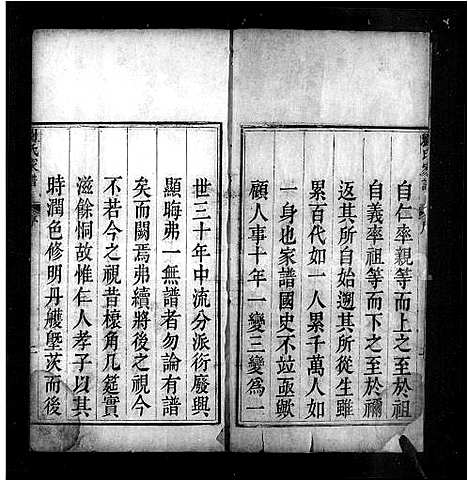 自仁率親等而上之至於祖
自義率祖等而下之至於禰
返其所自始遡其所從生雖
累百代如一人累千萬人如
一身也家譜國史不竝亟歟
顧人事十年一變三變爲一
世三十年中流分派衍廢興
顯晦弗一無譜者勿論有譜
矣而闕焉弗續將後之視今
不若今之視昔榱角几筵實
滋餘恫故惟仁人孝子以其
時潤色修明丹雘墍茨而後
氏家譜